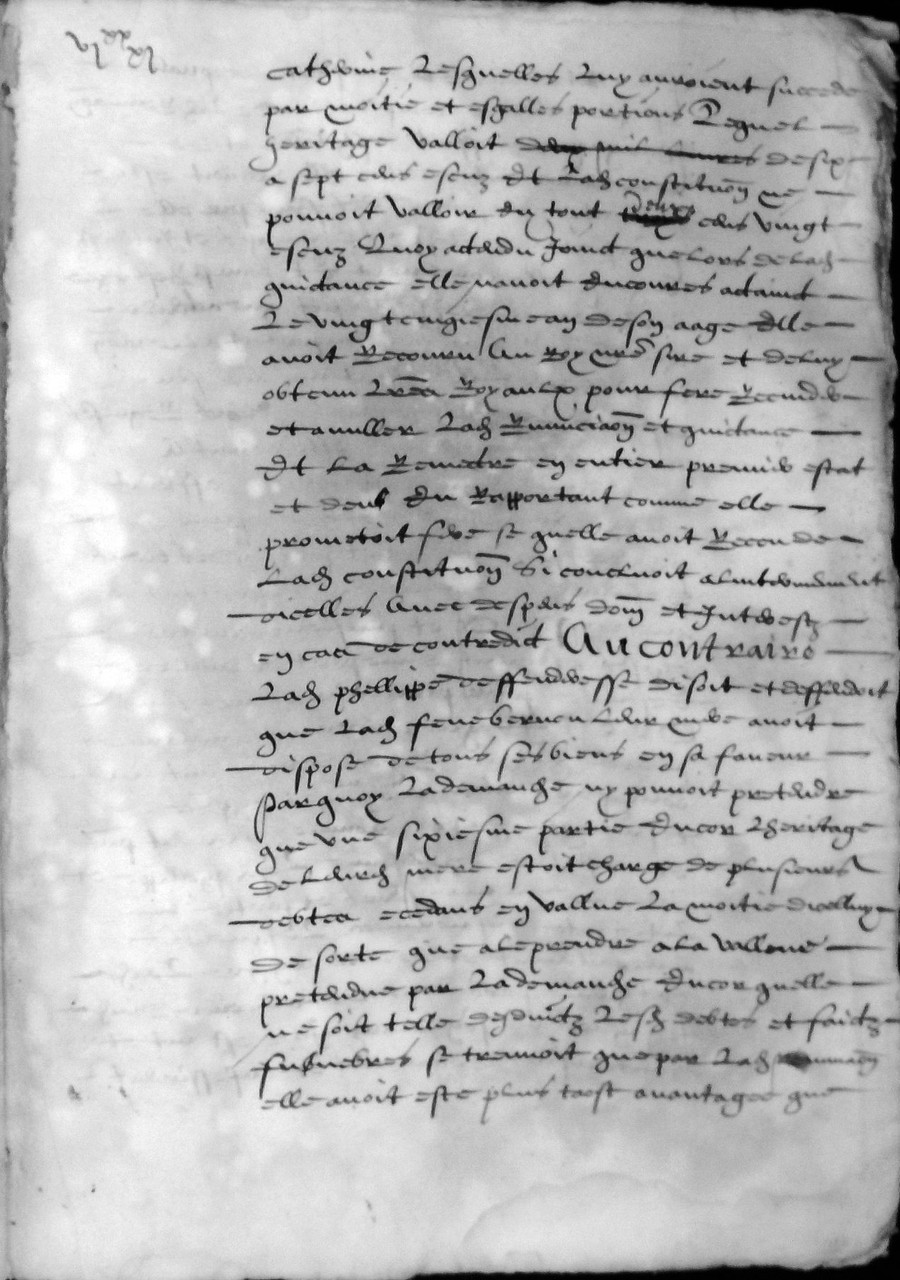 catherine Lesquelles luy auroient succede
par moitie et esgalles portions Lequel
heritage valloit deux mil livres de six
a sept cens escuz Et Lad constitution ne
pouvoit valloir du tout deux cens vingt
escuz Quoy actendu Joinct que lors de lad
quictance elle navoit Encoures actainct
Le vingt cinqiesme an de son aage Elle
avoit Recouru Au Roy nre sire et de luy
obtenu Lres Royaulx pour fere Recinder
et anuller Lad Renunciaon et quictance
Et La Remectre en entier premier estat
et deub En Rapportant comme elle
prometoit fere se quelle avoit Receu de
Lad constitution Si concluoit a lintherinement
dicelles Avec despens dom et Interestz
en cas de contredict Au contraire
Lad phellippe deffenderesse disoit et deffendoit
que Lad feue bernon leur mere avoit
dispose de tous ses biens en sa faveur
Par quoy La demanche ny pouvoit pretendre
que une sixiesme partie Encor Lheritage
de leurd mere estoit charge de plusieurs
debtes ecedans en vallue La moitie dicelluy
De sorte que a le prendre a la valleue
pretendue par La demanche Encor quelle
ne soit telle desduictz Lesd debtes et faictz
funebres se trouvoit que par Lad
elle avoit este plus tost avantagee que